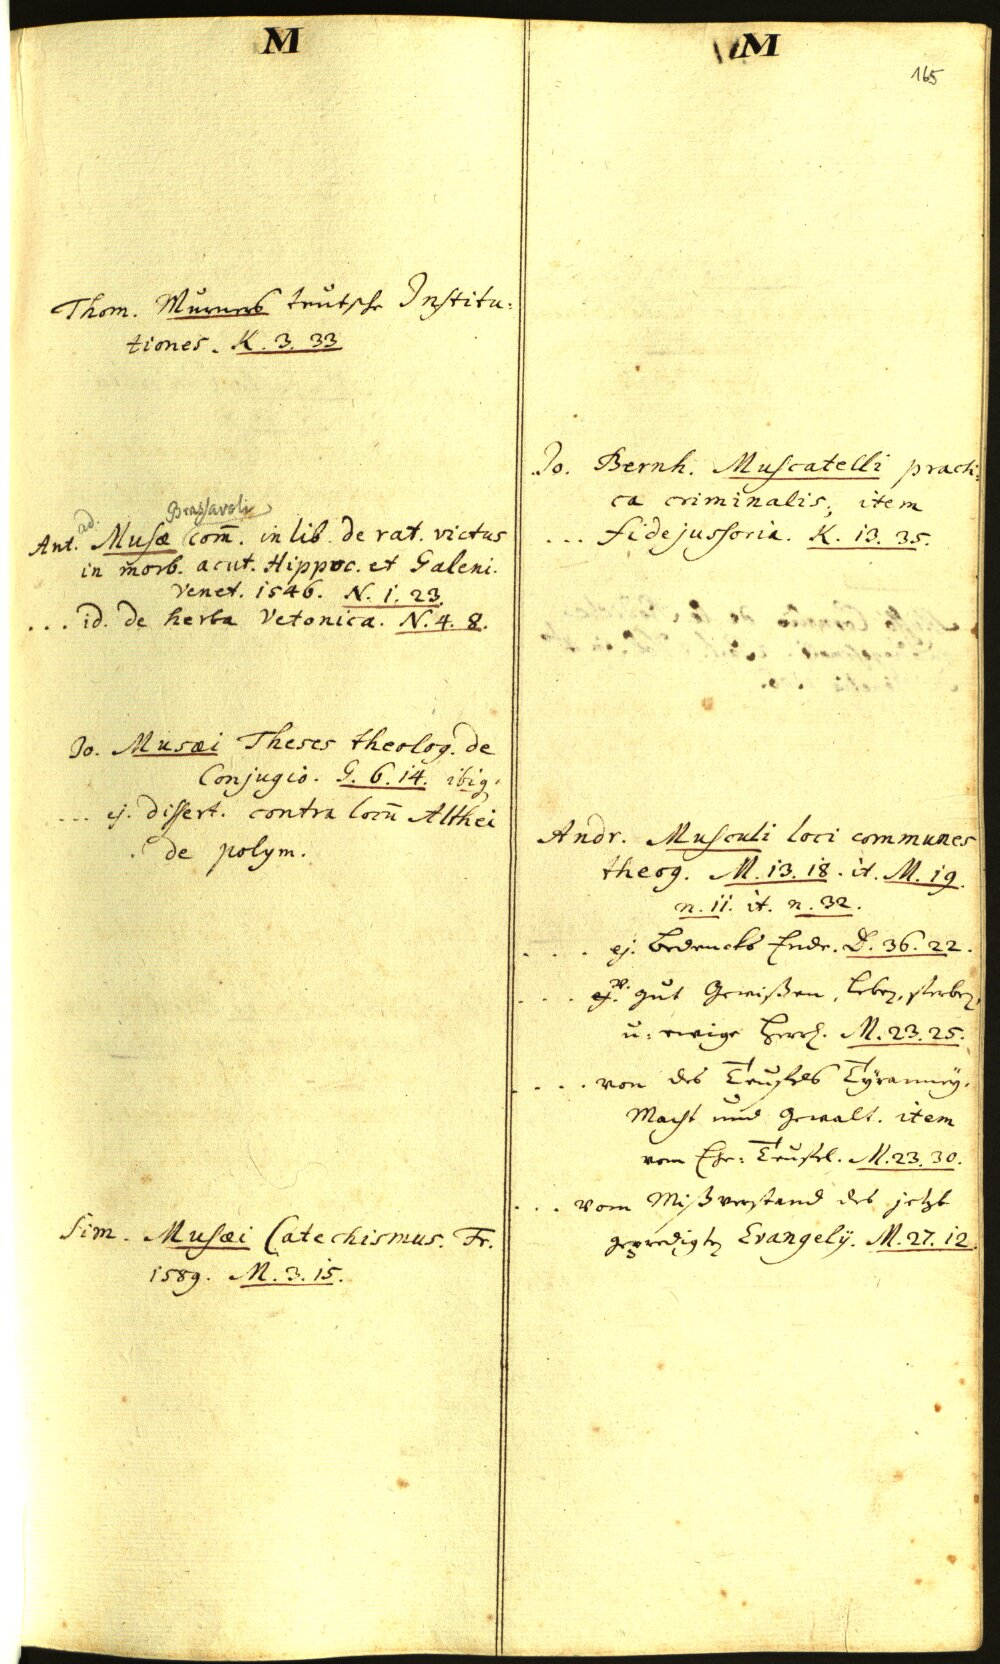 M
Thom. Murners teutsche Institu:
tiones. K. 3. 33
Brassavoli
ad.
Ant. Musæ Com̄. in lib. de rat. victus
in morb. acut. Hippoc. et Galeni.
Venet. 1546. N. 1. 23.
... id. de herba Vetonica. N. 4. 8.
Jo. Musæi Theses theolog. de
Conjugio. G. 6. 14. ibig.
... ej. dissert. contra locū Althei
de polym.
Sim. Musæi Catechismus. Fr.
1589. M. 3. 15.
M
165
Jo. Bernh. Muscatelli practi:
ca criminalis, item
... fidejussoria. K. 13. 35.
Andr. Musculi loci communes
theog. M. 13. 18. it. M. 19.
n. 11. it. n. 32.
.... ej. Bedencks Ende. D. 36. 22.
.... gut Gewißen, Leben, sterben,
u: ewige Herrl. M. 23. 25.
.... von des Teufels Tÿranneÿ,
Macht und Gewalt. item
vom Ehe: Teufel. M. 23. 30.
... vom Mißverstand des jetzt
gepredigten Evangelÿ. M. 27. 12.